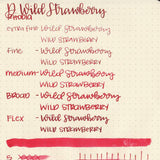 D Wild Strawberry
extra fine - Wild Strawberry
WILD STRAWBERRY
Fine - Wild Strawberry
WILD STRAWBERRY
medium - Wild Strawberry
WILD STRAWBERRY
BROAD - Wild Strawberry
WILD STRAWBERRY
FLEX - Wild Strawberry
WILD STRAWBERRY
S